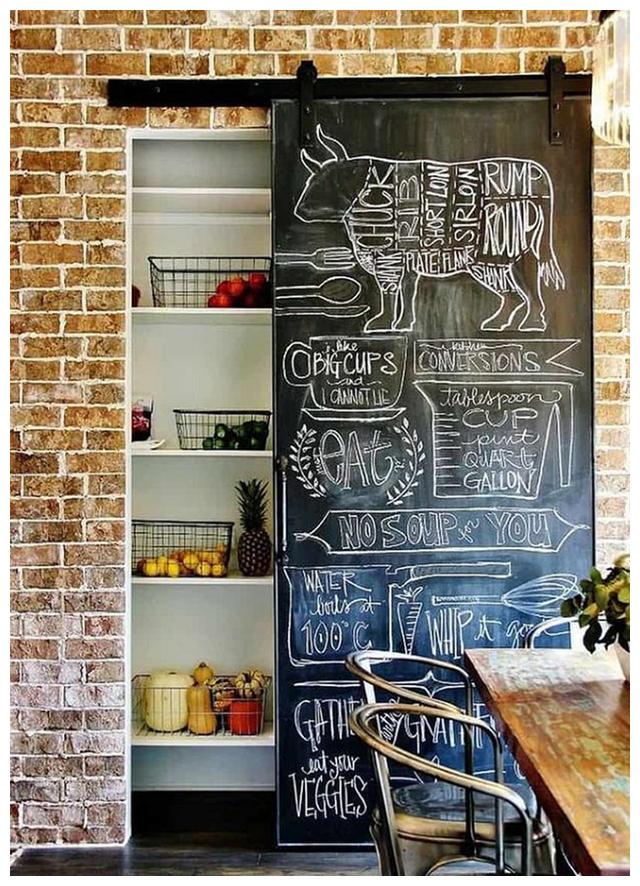 CHUCK RIB SHORT LOIN SIRLOIN RUMP
ROUND
SHANK PLATE FLANK SHANK
i like
BIG CUPS
and
I CANNOT LIE
kitchen
CONVERSIONS
tablespoon
CUP
pint
QUART
GALLON
eat
NO SOUP for YOU
WATER
boils at
100°C
WHIP it good
GATH
eat your
VEGGIES